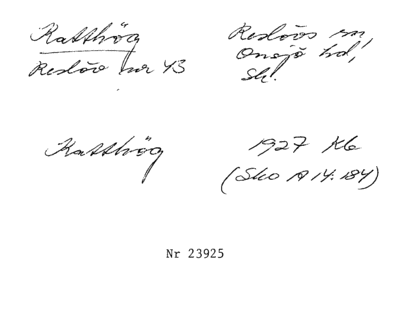 Katthög
Reslöv nr 43
Reslövs sn,
Onsjö hd,
Sk.
Katthög
1927 Kb
(Sko A 14:184)
Nr 23925